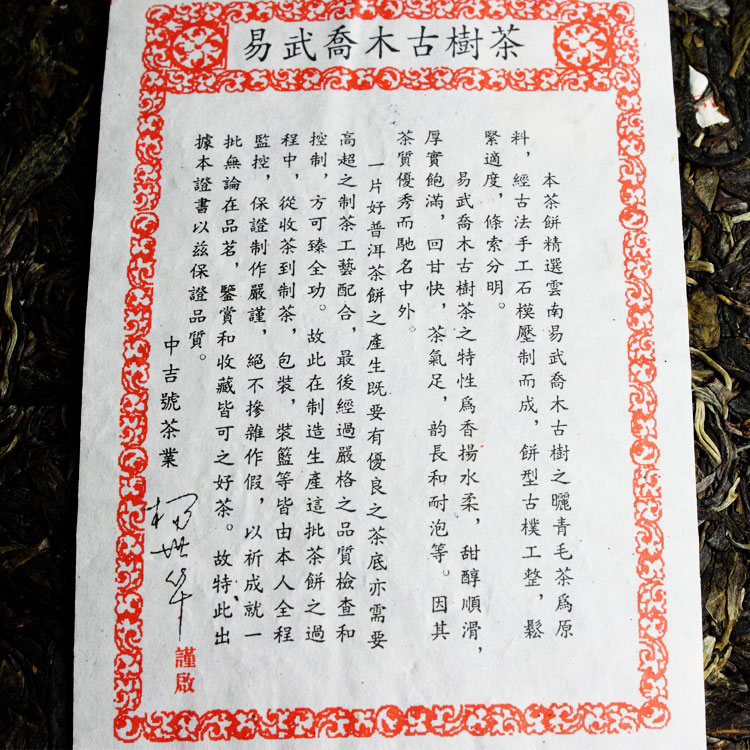 易武喬木古樹茶
本茶餅精選雲南易武喬木古樹之曬青毛茶爲原
料，經古法手工石模壓制而成，餅型古樸工整，鬆
緊適度，條索分明。
易武喬木古樹茶之特性爲香揚水柔，甜醇順滑，
厚實飽滿，回甘快，茶氣足，韵長和耐泡等。因其
茶質優秀而馳名中外。
一片好普洱茶餅之產生既要有優良之茶底亦需要
高超之制茶工藝配合，最後經過嚴格之品質檢查和
控制，方可臻全功。故此在制造生產這批茶餅之過
程中，從收茶到制茶，包裝，裝籃等皆由本人全程
監控，保證制作嚴謹，絕不摻雜作假，以祈成就一
批無論在品茗，鑒賞和收藏皆可之好茶。故特此出
據本證書以兹保證品質。
中吉號茶業
楊世華
謹啟